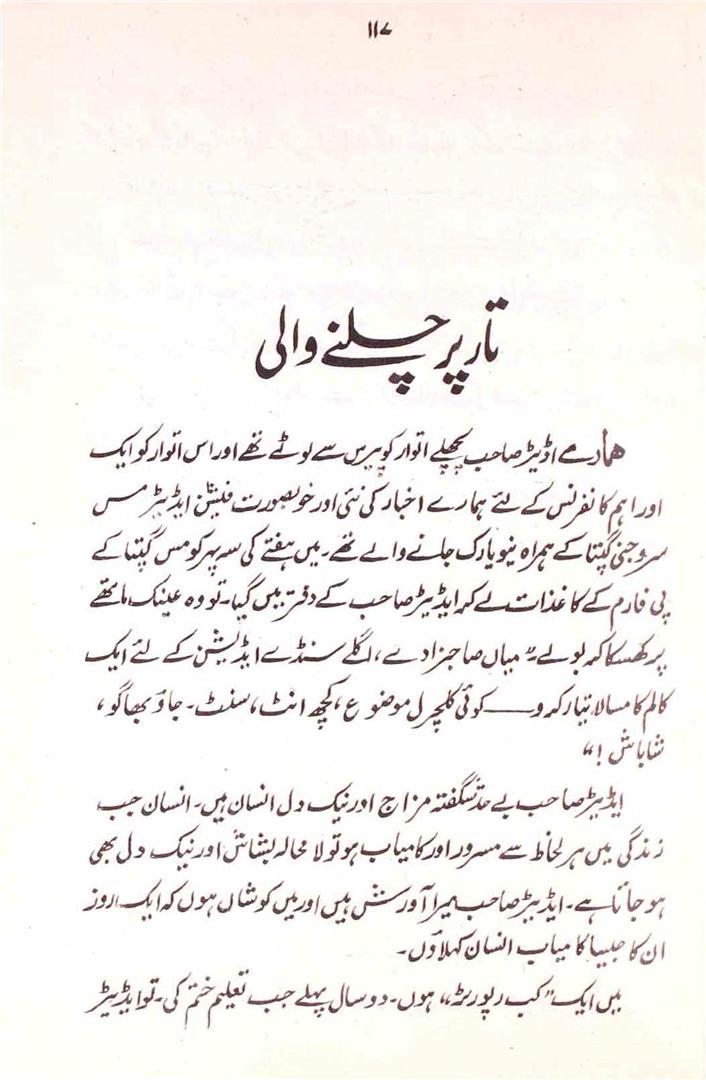 ۱۱۷
تار پر چلنے والی
ہمارے اڈیٹر صاحب پچھلے اتوار کو پیرس سے لوٹے تھے اور اس اتوار کو ایک
اور اہم کانفرنس کے لئے ہمارے اخبار کی نئی اور خوبصورت فیشن ایڈیٹر مس
سروجنی گپتا کے ہمراہ نیو یارک جانے والے تھے۔ میں ہفتے کی سہ پہر کو مس گپتا کے
پی فارم کے کاغذات لے کر ایڈیٹر صاحب کے دفتر میں گیا۔ تو وہ عینک ماتھے
پر کھسکا کر بولے۔ "میاں صاحبزادے، اگلے سنڈے ایڈیشن کے لئے ایک
کالم کا مسالا تیار کر و——کوئی کلچرل موضوع، کچھ انٹ، سنٹ۔ جاؤ بھاگو،
شاباش!"
ایڈیٹر صاحب بے حد شگفتہ مزاج اور نیک دل انسان ہیں۔ انسان جب
زندگی میں ہر لحاظ سے مسرور اور کامیاب ہو تو لا محالہ بشاش اور نیک دل بھی
ہو جاتا ہے۔ ایڈیٹر صاحب میرا آورش ہیں اور میں کوشاں ہوں کہ ایک روز
ان کا جیسا کامیاب انسان کہلاؤں۔
میں ایک "کب رپورٹر" ہوں۔ دو سال پہلے جب تعلیم ختم کی۔ تو ایڈیٹر